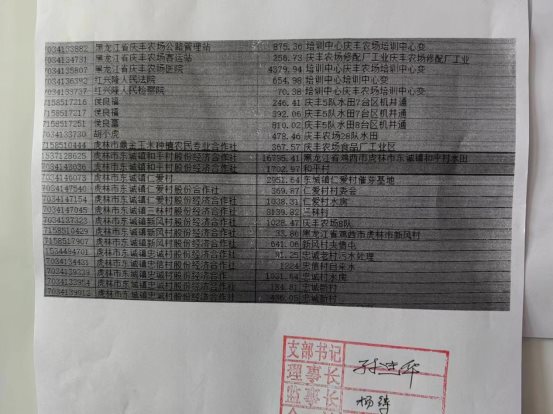 7034133882 黑龙江省庆丰农场公路管理站 875.36 培训中心庆丰农场培训中心变
7034134731 黑龙江省庆丰农场客运站 258.73 庆丰农场修配厂工业庆丰农场修配厂工业
7034135807 黑龙江省庆丰农场医院 4379.94 培训中心庆丰农场培训中心变
7034136392 红兴隆人民法院 654.98 培训中心庆丰农场培训中心变
7034133737 红兴隆人民检察院 70.38 培训中心庆丰农场培训中心变
7158517216 侯良福 246.41 庆丰5队水田7台区机井通
7158517217 侯良福 392.06 庆丰5队水田7台区机井通
7158517251 侯良富 810.02 庆丰5队水田8台区机井通
7034133730 胡小虎 478.46 庆丰农场28队水田
7158510444 虎林市鼎金工卡种植农民专业合作社 367.57 庆丰农场食品厂工业区
1537128625 虎林市东诚镇和平村股份经济合作社 16795.41 黑龙江省鸡西市虎林市东诚镇和平村水田
虎林市东诚镇和平村股份经济合作社 1702.97 和平村
7034146073 虎林市东诚镇仁爱村 2951.64 东诚镇仁爱村催芽基地
7034147540 虎林市东诚镇仁爱村股份合作社 369.87 仁爱村村委会
7034147154 虎林市东诚镇仁爱村股份经济合作社 1038.31 仁爱村水房
7034147045 虎林市东诚镇三林村股份经济合作社 3139.82 三林村
7034137323 虎林市东诚镇新风村股份经济合作社 1028.47 庆丰农场8队
7158510429 虎林市东诚镇新风村股份经济合作社 33.86 黑龙江省鸡西市虎林市新风村
7158517907 虎林市东诚镇新风村股份经济合作社 641.06 新风村夹信屯
1534494701 虎林市东诚镇忠诚村股份经济合作社 91.25 忠诚老村污水处理
7034134431 虎林市东诚镇忠信村股份经济合作社 1224 忠信村自来水
7034139331 虎林市东诚镇忠诚村股份经济合作社 忠诚村水房
7034133954 虎林市东诚镇忠诚村股份经济合作社 184.81 忠诚新村
虎林市东诚镇忠诚村股份经济合作社 436.05 忠诚新村
支部书记
理事长
监事长 杨